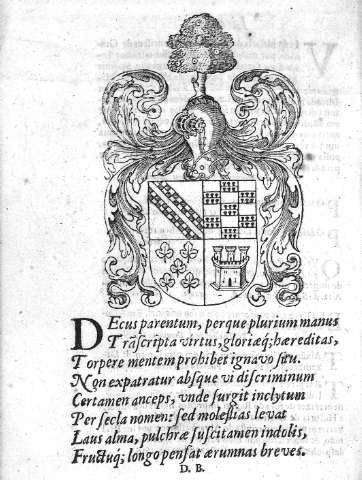 DEcus parentum, perque plurium manus
Trãscripta virtus, gloriæq; hæreditas,
Torpere mentem prohibet ignavo situ.
Non expatratur absque vi discriminum
Certamen anceps, vnde surgit inclytum
Per secla nomen: sed molestias levat
Laus alma, pulchræ suscitamen indolis,
Fructuq; longo pensat ærumnas breves.
D. B.